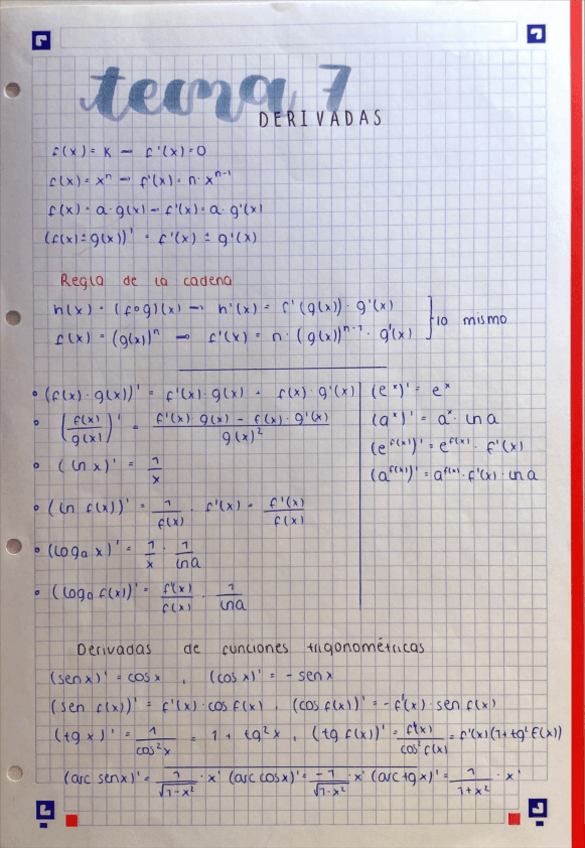 tema 7
DERIVADAS
f(x) = K → f'(x) = 0
f(x) = xⁿ → f'(x) = n · xⁿ⁻¹
f(x) = a · g(x) → f'(x) = a · g'(x)
(f(x) ± g(x))' = f'(x) ± g'(x)
Regla de la cadena
h(x) = (f∘g)(x) → h'(x) = f'(g(x)) · g'(x)
f(x) = (g(x))ⁿ → f'(x) = n · (g(x))ⁿ⁻¹ · g'(x) } lo mismo
• (f(x) · g(x))' = f'(x) · g(x) + f(x) · g'(x)
• (f(x)/g(x))' = (f'(x) · g(x) − f(x) · g'(x))/g(x)²
• (ln x)' = 1/x
• (ln f(x))' = 1/f(x) · f'(x) = f'(x)/f(x)
• (logₐ x)' = 1/x · 1/ln a
• (logₐ f(x))' = f'(x)/f(x) · 1/ln a
(eˣ)' = eˣ
(aˣ)' = aˣ · ln a
(e^f(x))' = e^f(x) · f'(x)
(a^f(x))' = a^f(x) · f'(x) · ln a
Derivadas de funciones trigonométricas
(sen x)' = cos x , (cos x)' = − sen x
(sen f(x))' = f'(x) · cos f(x) , (cos f(x))' = − f'(x) · sen f(x)
(tg x)' = 1/cos²x = 1 + tg²x , (tg f(x))' = f'(x)/cos² f(x) = f'(x)(1+tg² f(x))
(arc sen x)' = 1/√(1-x²) · x' (arc cos x)' = -1/√(1-x²) · x' (arc tg x)' = 1/(1+x²) · x'